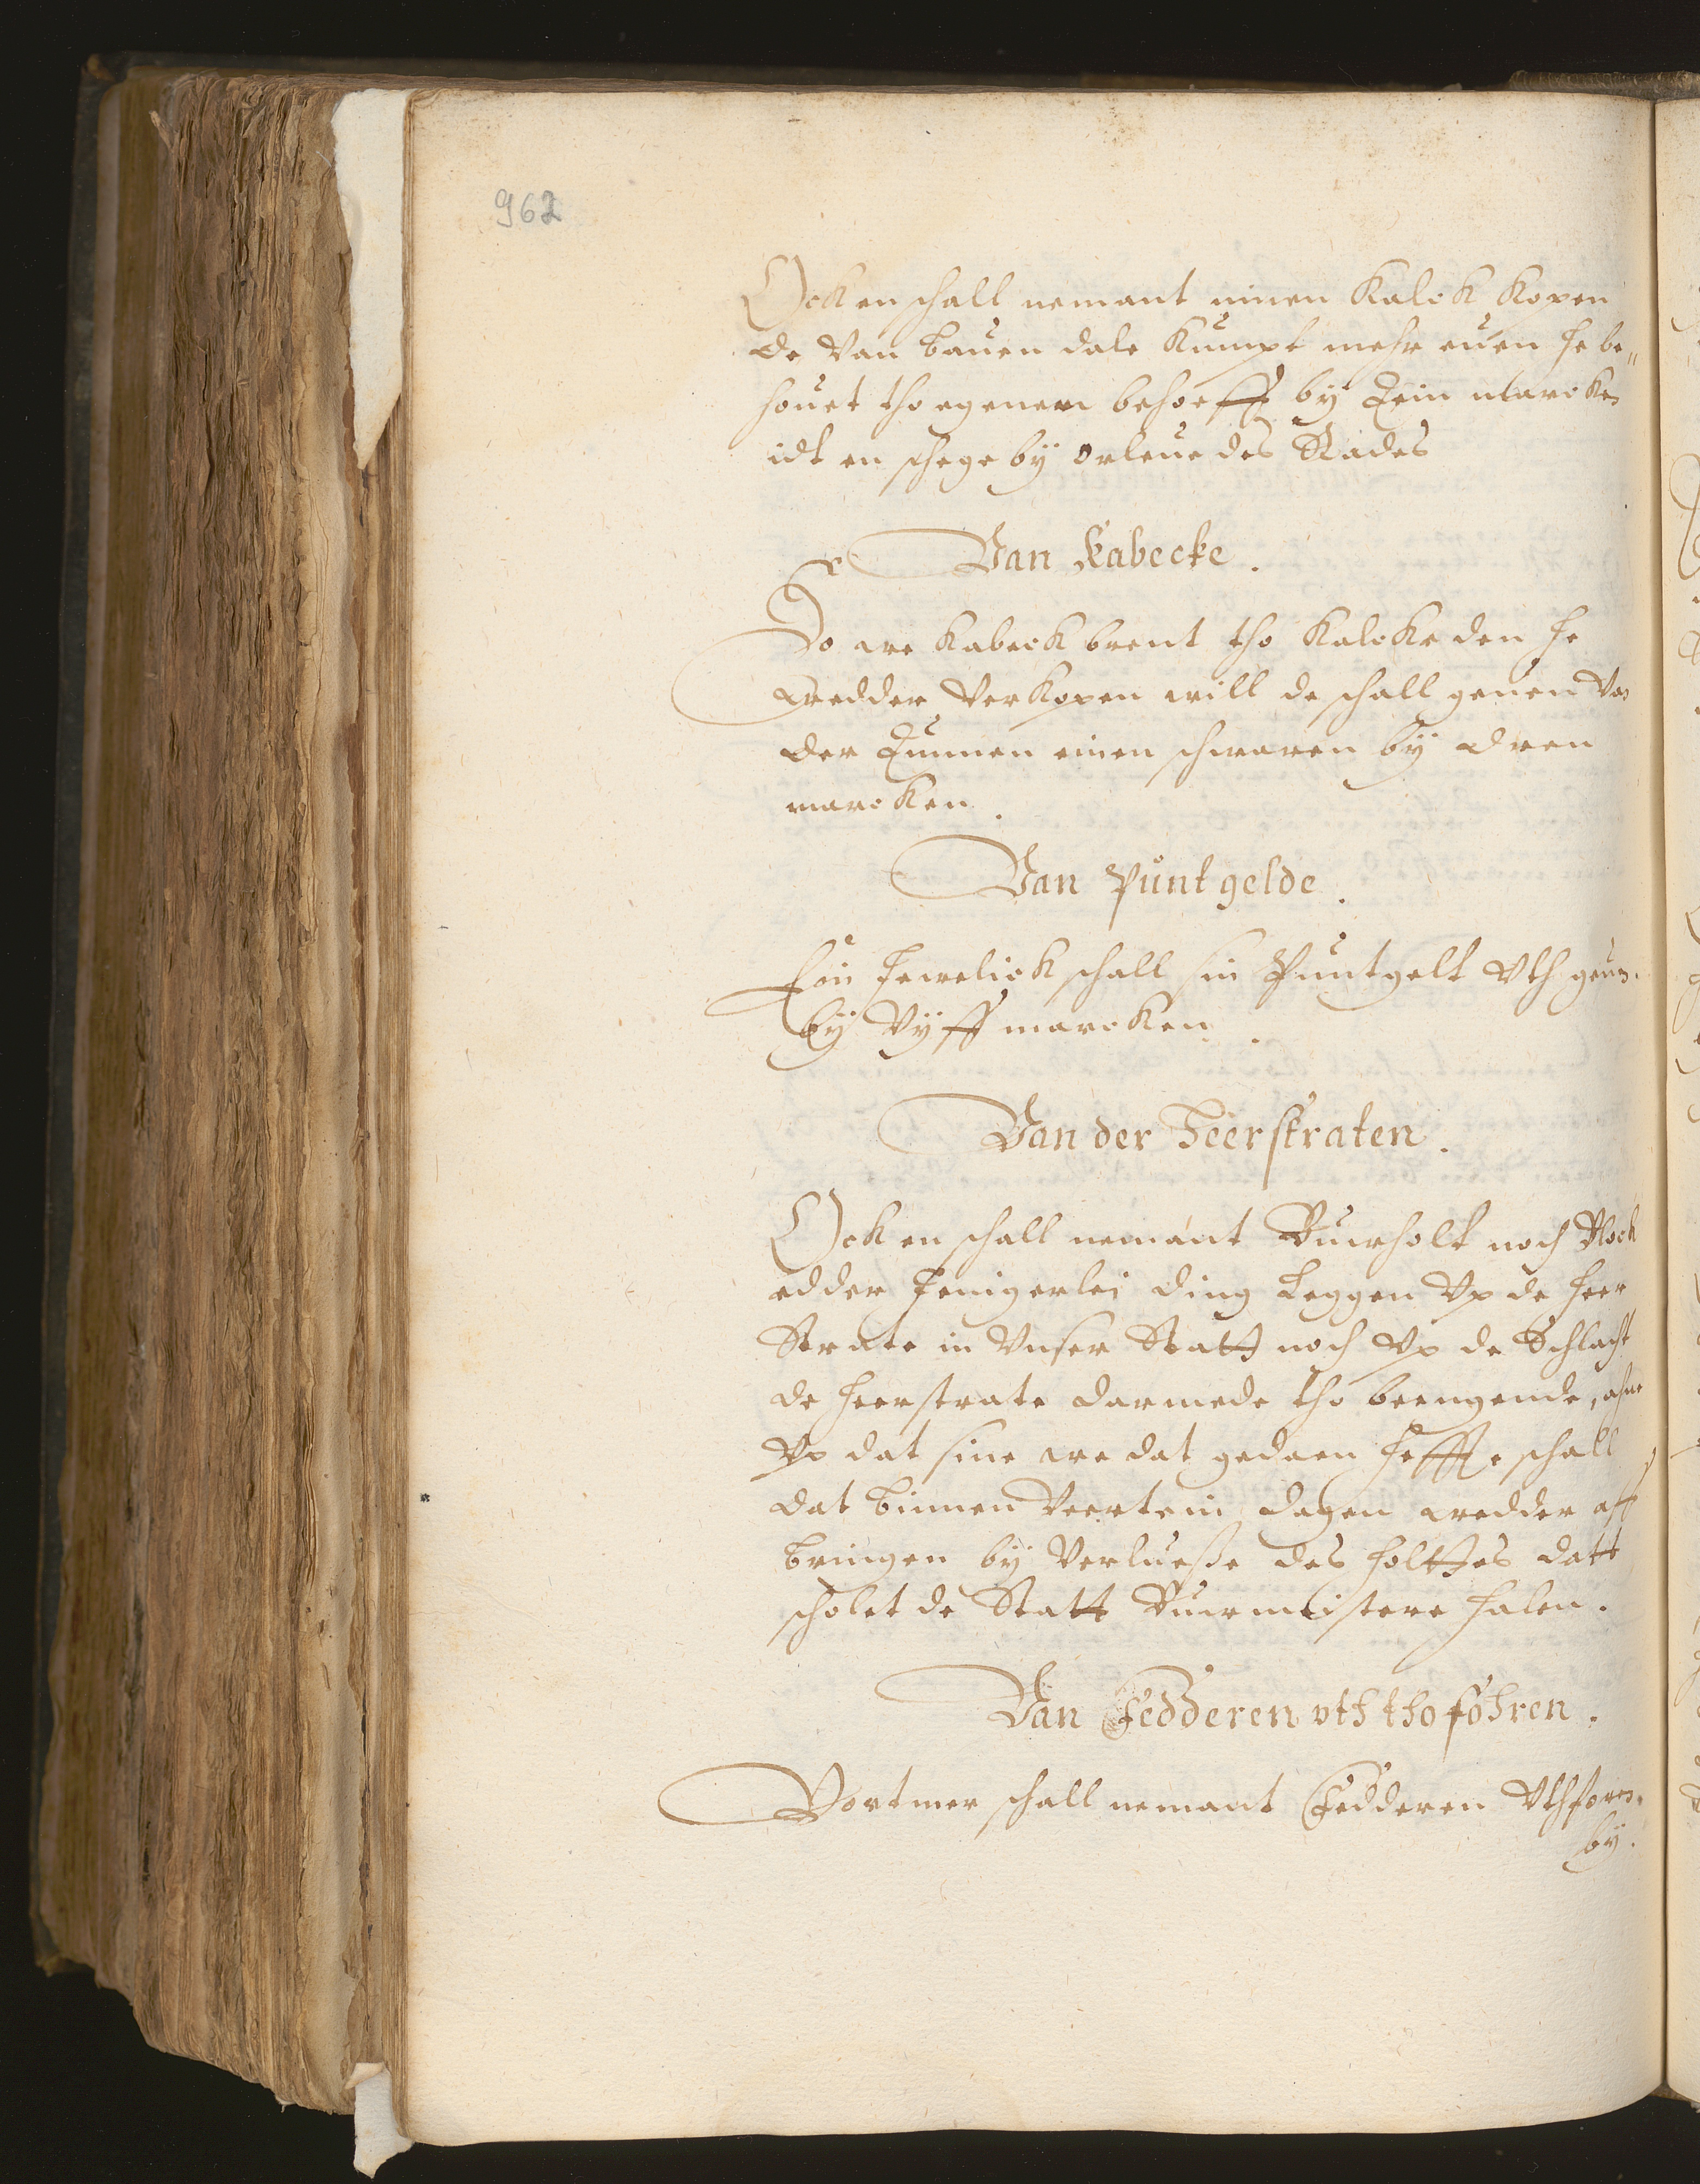 962
Ock en schall nemant einen Kalck kopen
de van bauen dale kumpt mehr euen he be„
houet tho egenem behoeff by Tein marcken
idt en schege by orleue des Rades
Van Kabecke.
So we kabeck brent tho Kalcke den he
wedder verkopen will de schall geuen van
der Tunnen einen schwaren by dreen
marcken.
Van Puntgelde.
Ein Jewelick schall sin Puntgelt vth geuen.
by vyff marcken.
Van der Heerstraten.
Ock en schall nemant Buwholt noch Block
edder Jenigerlei ding Leggen vp de heer
Strate in vnser Statt noch vp de Schlacht
de heerstrate darmede tho beengende, ahne
vp dat sine we dat gedaen hefft schall
dat binnen veertein dagen wedder aff
bringen by verluesse des holttes datt
scholet de Statt Buwmeistere halen.
Van Fedderen vth tho föhren.
Vortmer schall nemant Fedderen vthforen.
by.